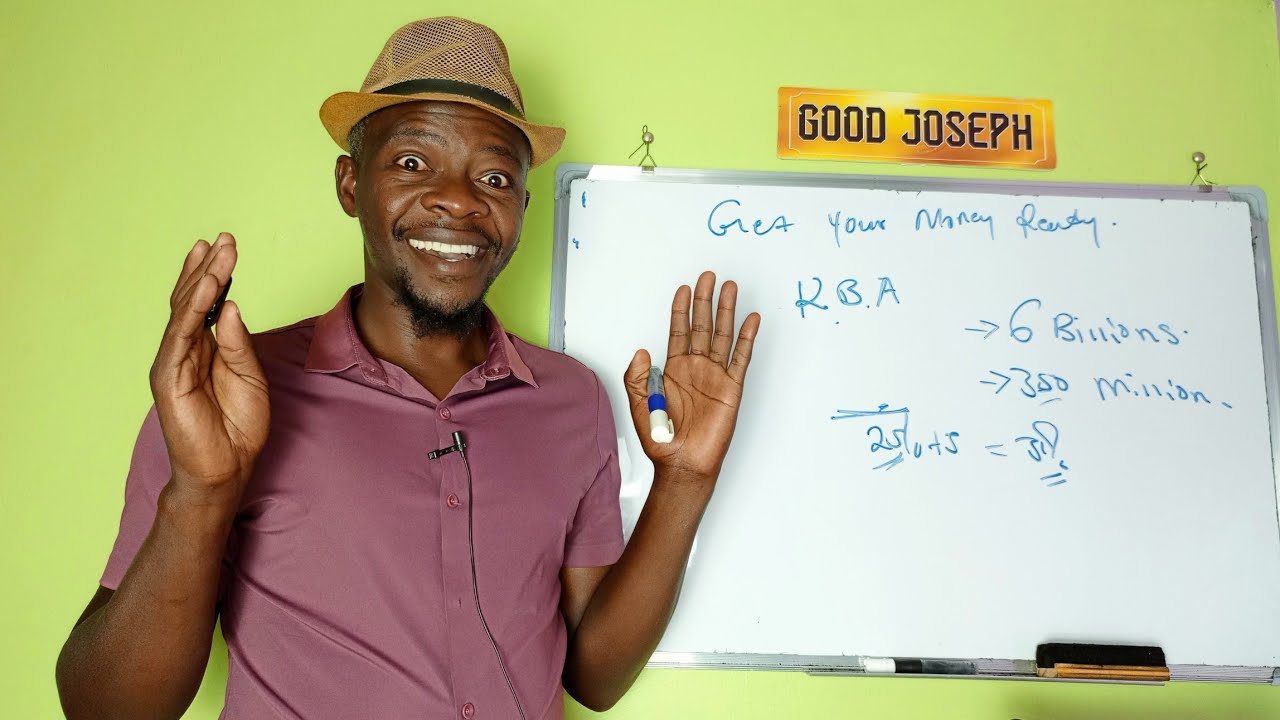 GOOD JOSEPH
Get your Money Ready.
K.B.A
→ 6 Billions.
→ 350 Million.
=